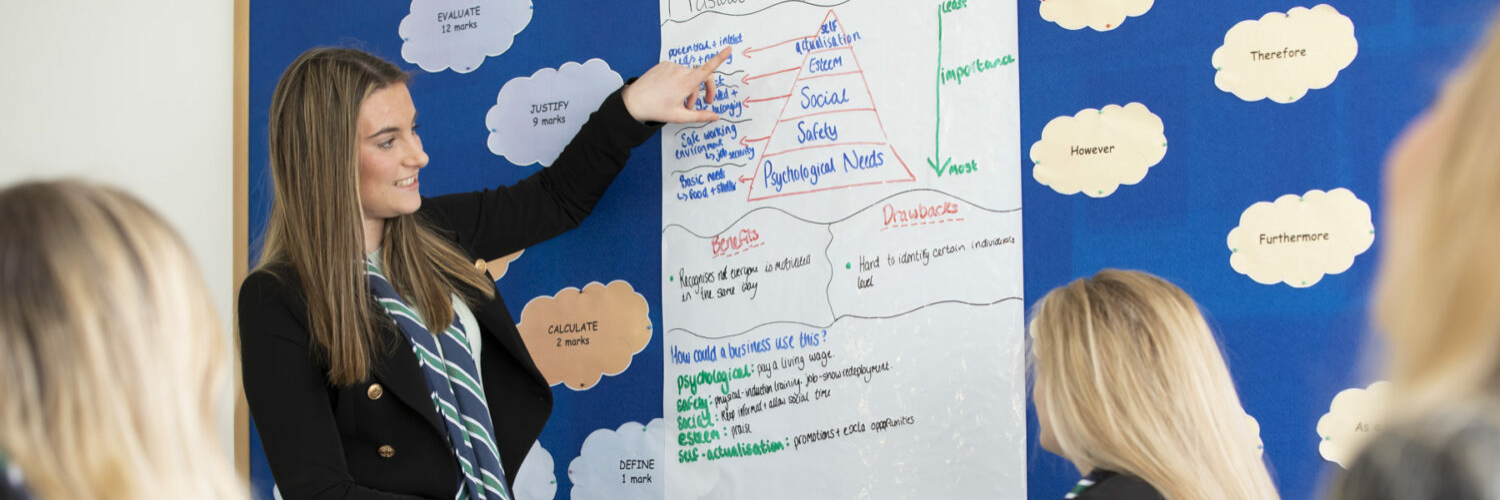 EVALUATE
12 marks
JUSTIFY
9 marks
CALCULATE
2 marks
DEFINE
1 mark
potential + interest
self
actualisation
Esteem
Social
Safety
Psychological Needs
belonging
Safe working
environment
↳ job security
Basic needs
↳ food + shelter
least
importance
Most
Benefits
• Recognises not everyone is motivated
in the same way
Drawbacks
• Hard to identify certain individuals
level
How could a business use this?
psychological: pay a living wage.
safety: physical-induction training. job-show redeployment.
social: Keep informed + allow social time
esteem: praise
self-actualisation: promotions + extra opportunities
Therefore
However
Furthermore
As a